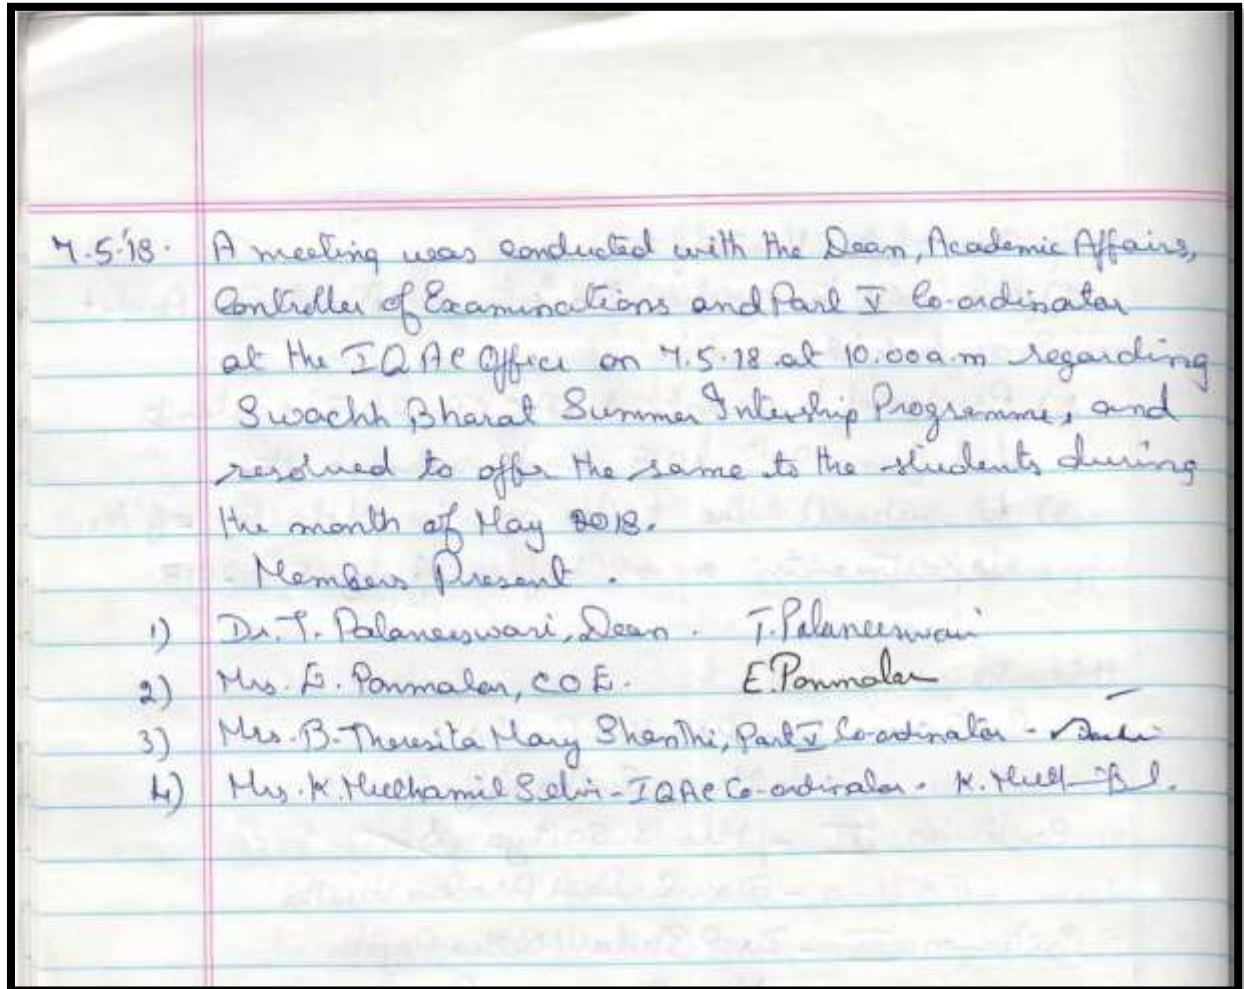 7.5.18. A meeting was conducted with the Dean, Academic Affairs,
Controller of Examinations and Part V Co-ordinator
at the IQAC Office on 7.5.18 at 10.00 a.m regarding
Swachh Bharat Summer Intership Programme, and
resolved to offer the same to the students during
the month of May 2018.
Members Present.
1) Dr. T. Palaneeswari, Dean. T. Palaneeswari
2) Mrs. E. Ponmalar, COE. E. Ponmalar
3) Mrs. B. Theresita Mary Shanthi, Part V Co-ordinator -
4) Mrs. K. Muthamil Selvi - IQAC Co-ordinator. K.